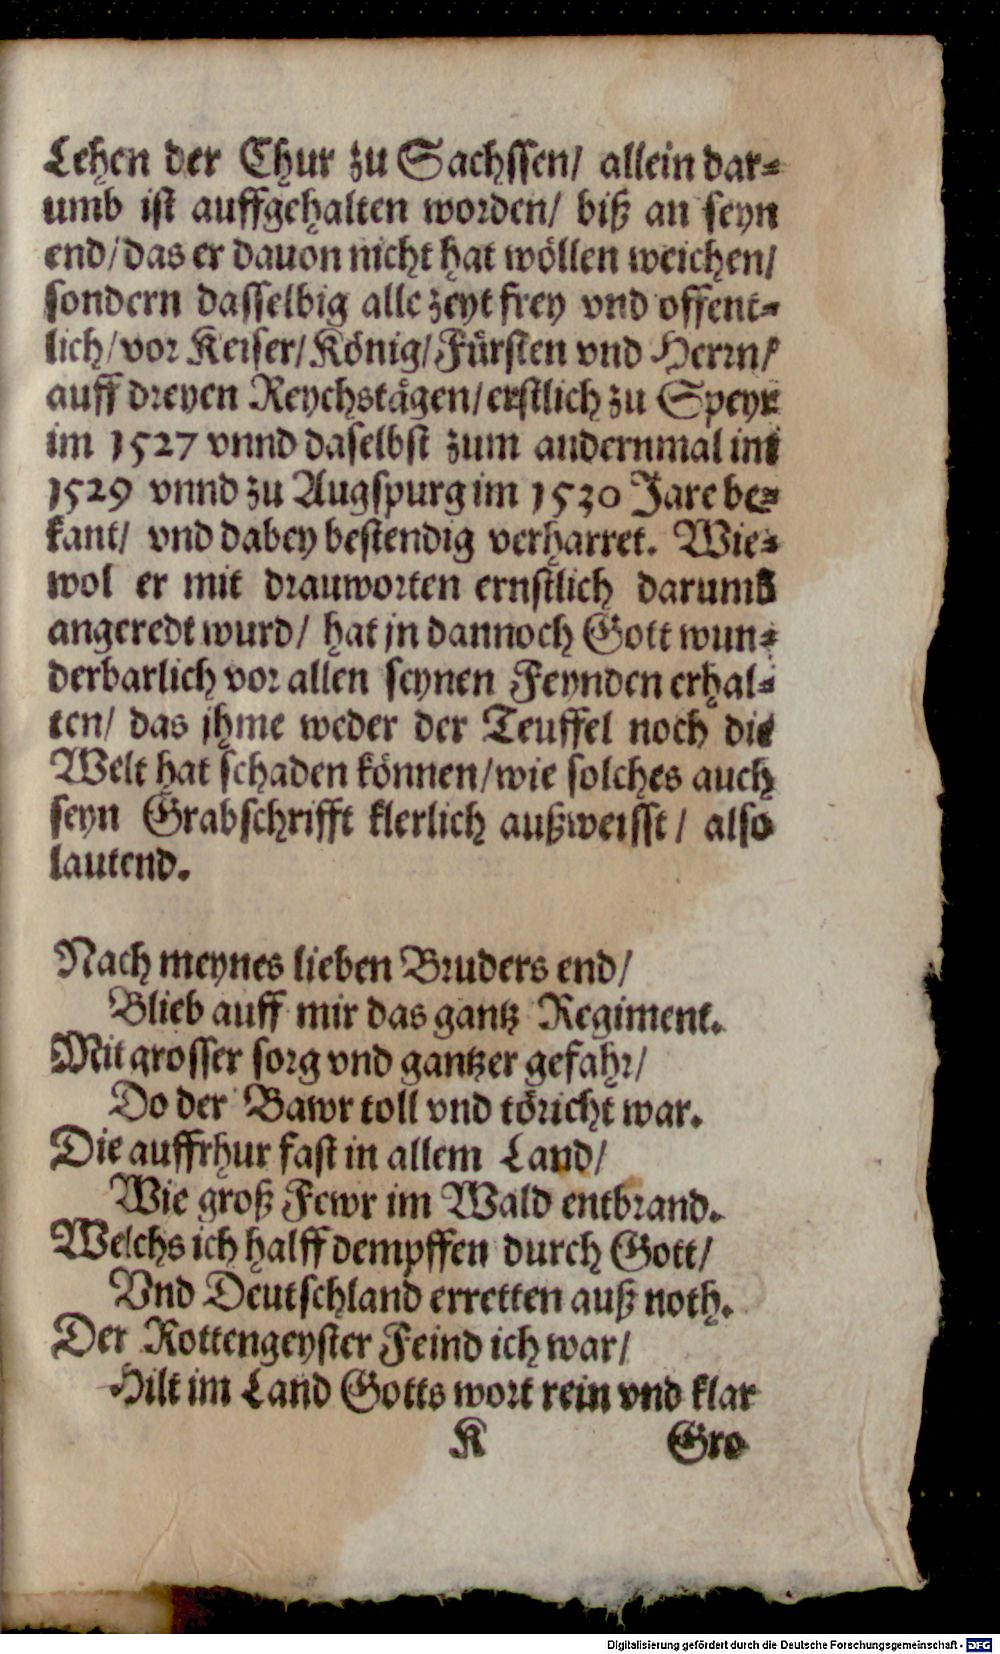 Lehen der Chur zu Sachssen/ allein dar⸗
umb ist auffgehalten worden/ biß an seyn
end/ das er dauon nicht hat wöllen weichen/
sondern dasselbig alle zeyt frey vnd offent⸗
lich/ vor Keiser/ König/ Fürsten vnd Herrn/
auff dreyen Reychstägen/ erstlich zu Speyr
im 1527 vnnd daselbst zum andernmal im
1529 vnnd zu Augspurg im 1530 Jare be⸗
kant/ vnd dabey bestendig verharret. Wie⸗
wol er mit drauworten ernstlich darumb
angeredt wurd/ hat jn dannoch Gott wun⸗
derbarlich vor allen seynen Feynden erhal⸗
ten/ das jhme weder der Teuffel noch die
Welt hat schaden können/ wie solches auch
seyn Grabschrifft klerlich außweisst/ also
lautend.
Nach meynes lieben Bruders end/
Blieb auff mir das gantz Regiment.
Mit grosser sorg vnd gantzer gefahr/
Do der Bawr toll vnd töricht war.
Die auffrhur fast in allem Land/
Wie groß Fewr im Wald entbrand.
Welchs ich halff dempffen durch Gott/
Vnd Deutschland erretten auß noth.
Der Rottengeyster Feind ich war/
Hilt im Land Gotts wort rein vnd klar
K Gro
Digitalisierung gefördert durch die Deutsche Forschungsgemeinschaft - DFG